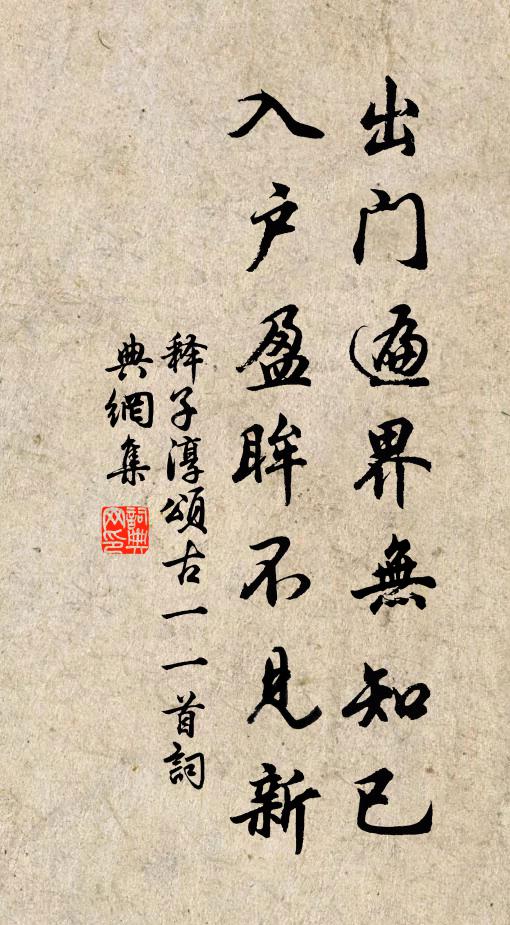 出門遍界無知已
入户盈眸不見新
释子淳頌古一一首詞
典網集
詞典
网印